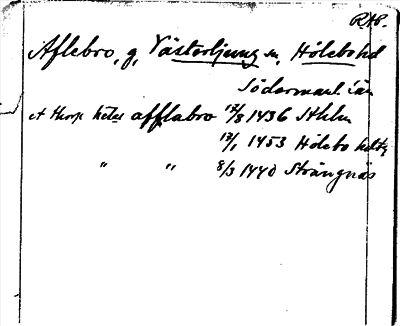 RAP.
Aflebro, g, Västerljung sn, Hölebo hd
Södermanl. län
et thorp hetes afflabro 17/8 1436 Sthlm
13/1 1453 Hölebo hdtg
" " 8/3 1440 Strängnäs